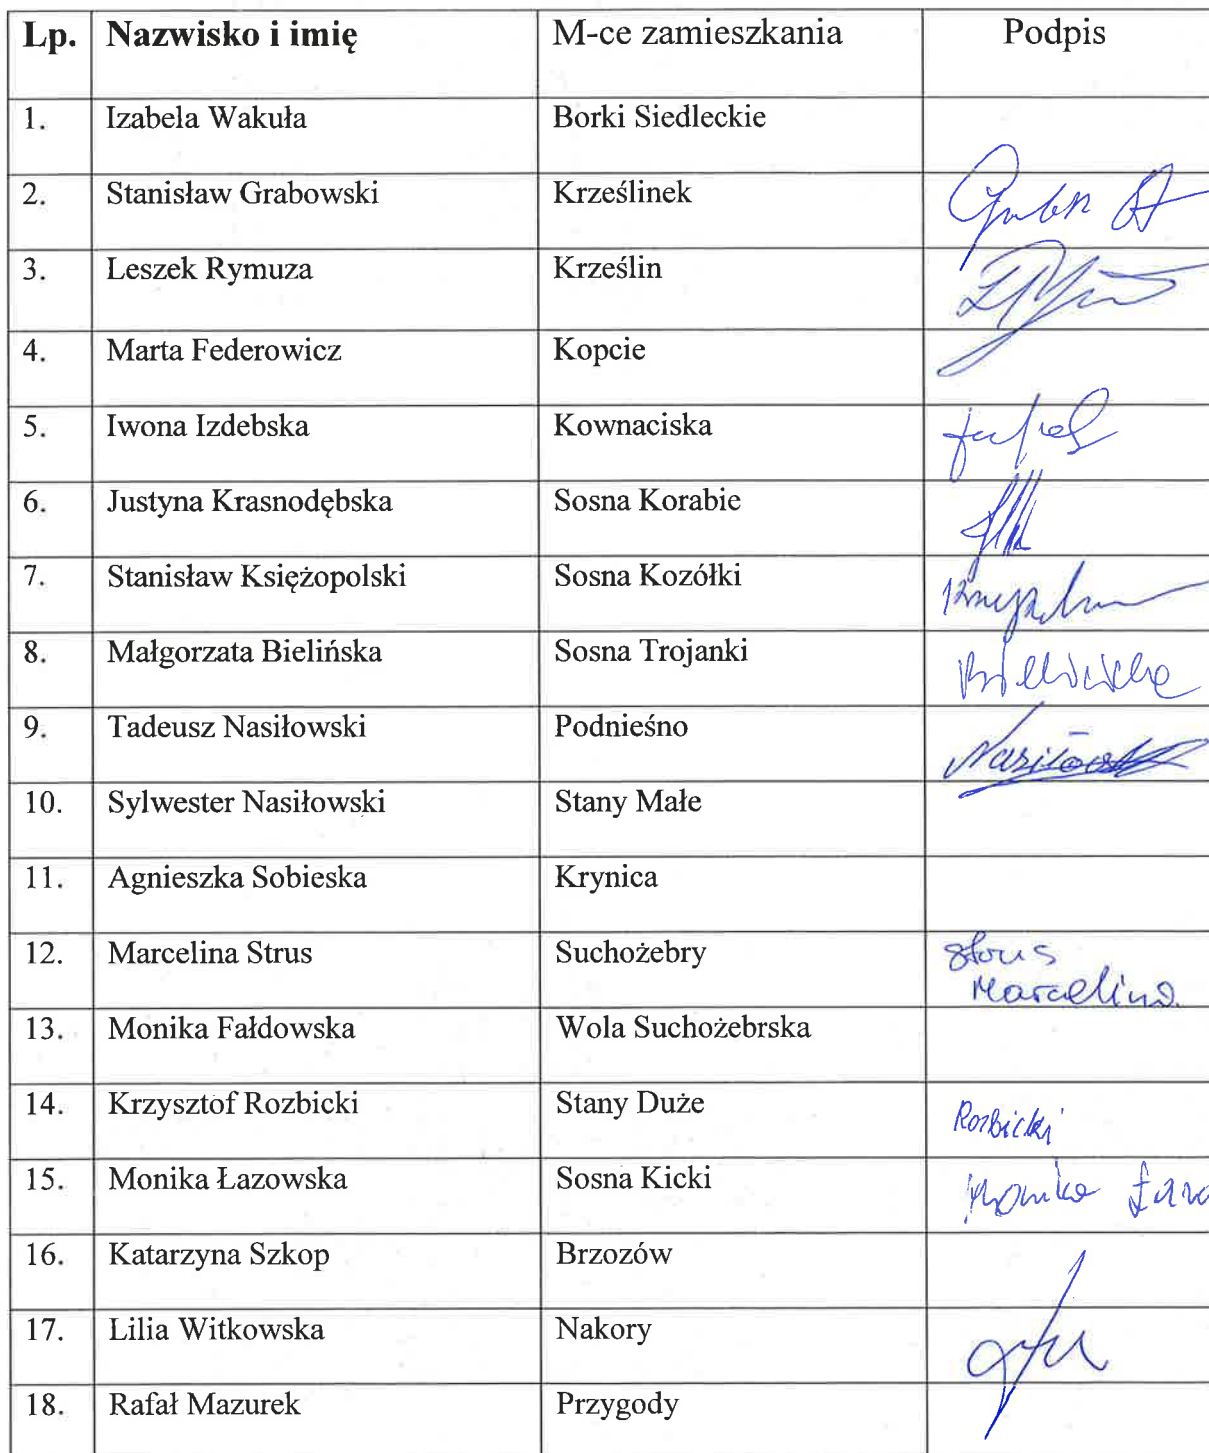 Lp. Nazwisko i imię M-ce zamieszkania Podpis
1. Izabela Wakuła Borki Siedleckie
2. Stanisław Grabowski Krześlinek
3. Leszek Rymuza Krześlin
4. Marta Federowicz Kopcie
5. Iwona Izdebska Kownaciska
6. Justyna Krasnodębska Sosna Korabie
7. Stanisław Księżopolski Sosna Kozółki
8. Małgorzata Bielińska Sosna Trojanki
9. Tadeusz Nasiłowski Podnieśno
10. Sylwester Nasiłowski Stany Małe
11. Agnieszka Sobieska Krynica
12. Marcelina Strus Suchożebry Strus
Marcelina
13. Monika Fałdowska Wola Suchożebrska
14. Krzysztof Rozbicki Stany Duże Rozbicki
15. Monika Łazowska Sosna Kicki Monika
16. Katarzyna Szkop Brzozów
17. Lilia Witkowska Nakory
18. Rafał Mazurek Przygody